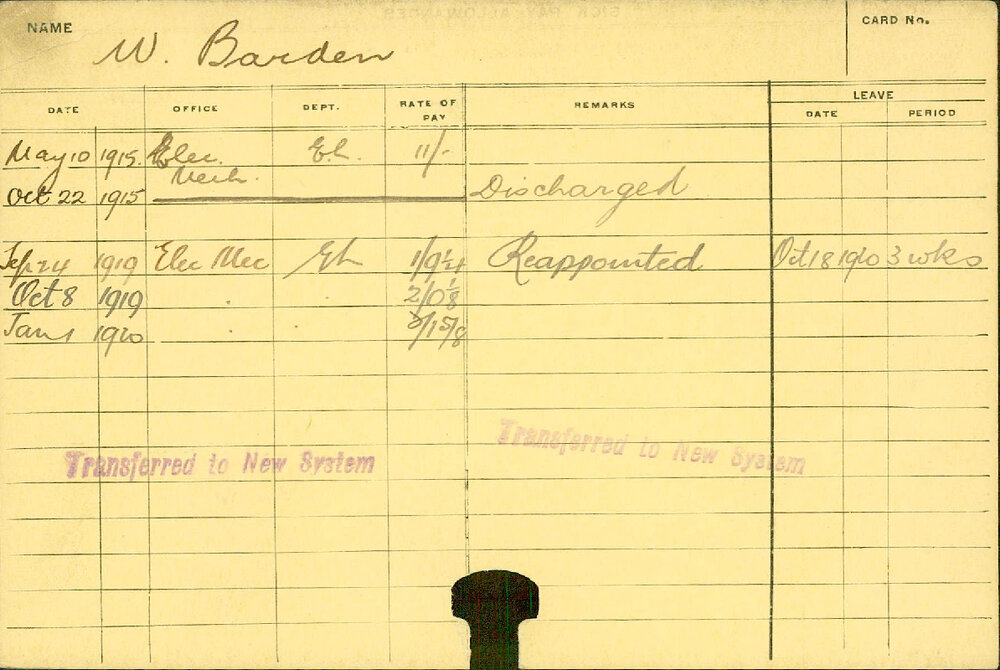 NAME W. Barden CARD No.
DATE OFFICE DEPT. RATE OF PAY REMARKS LEAVE
DATE PERIOD
May 10 1915. Elec. El. 11/-
Mech.
Oct 22 1915 Discharged
Sep 24 1919 Elec Mec El 1/9¼ Reappointed Oct 18 1920 3 wks
Oct 8 1919 " " 2/0⅛
Jan 1 1920 " "
Transferred to New System Transferred to New System